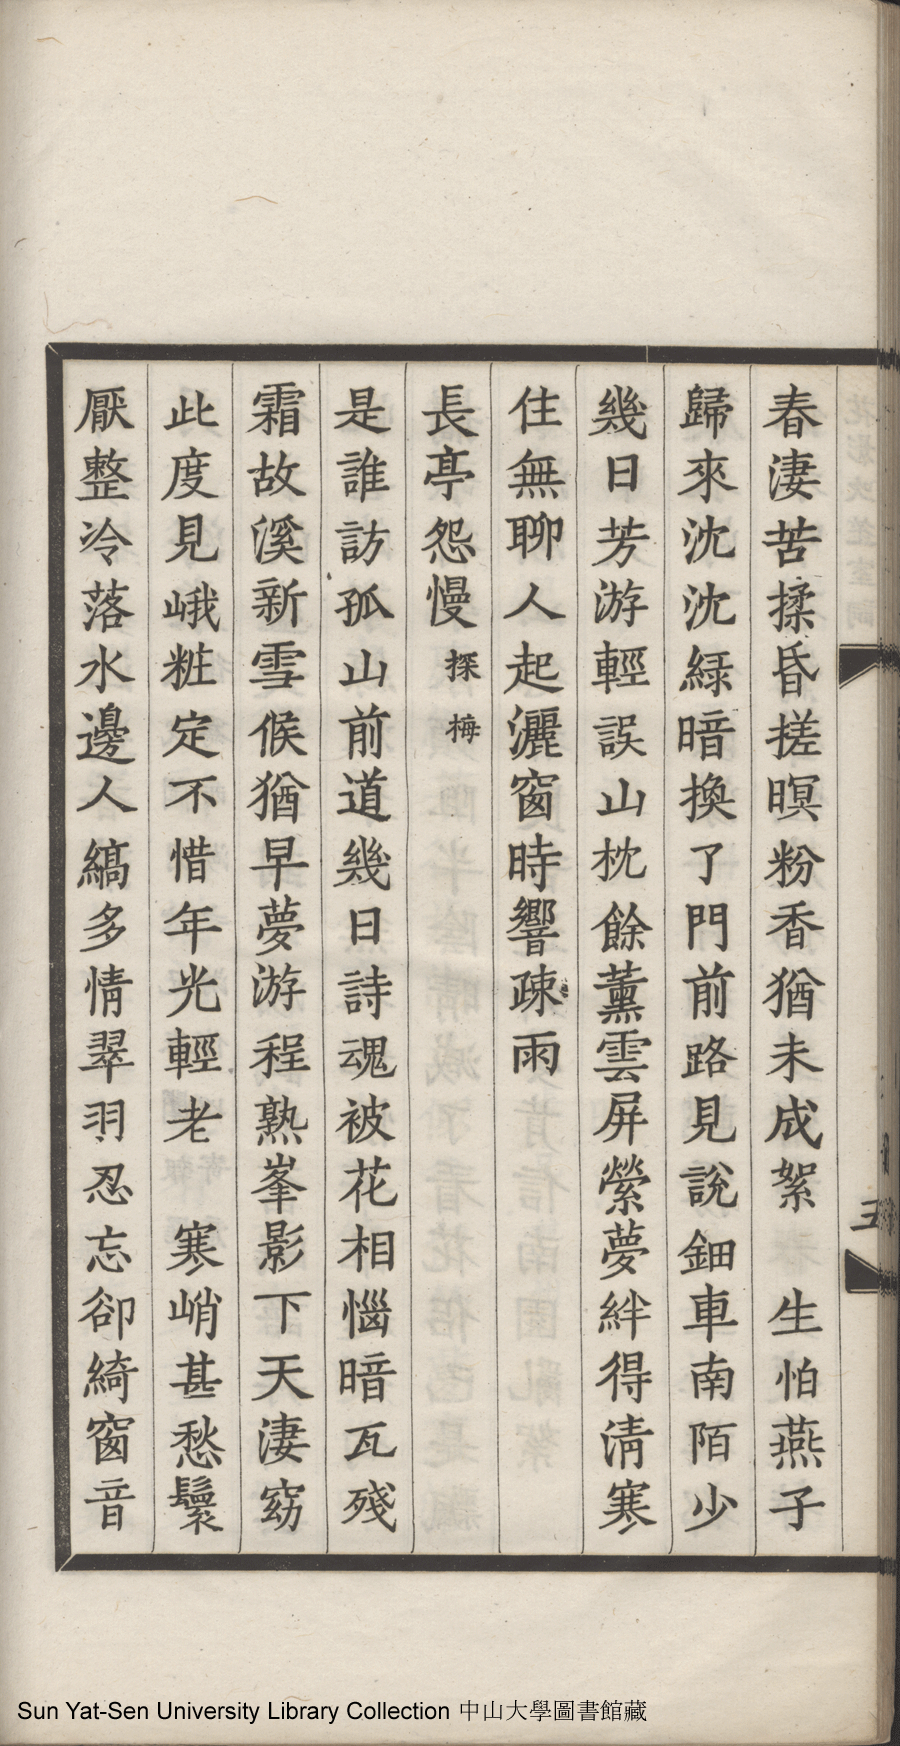 春淒苦揉昏搓暝粉香猶未成絮　生怕燕子
歸來沈沈綠暗換了門前路見說鈿車南陌少
幾日芳游輕誤山枕餘薰雲屏縈夢絆得清寒
住無聊人起灑窗時響疎雨
長亭怨慢 探梅
是誰訪孤山前道幾日詩魂被花相惱暗瓦殘
霜故溪新雪候猶早夢游程熟峯影下天淒窈
此度見峨粧定不惜年光輕老　寒峭甚愁鬟
厭整冷落水邊人縞多情翠羽忍忘卻綺窗音
五
Sun Yat-Sen University Library Collection 中山大學圖書館藏